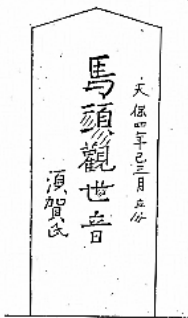 天保四年巳三月立分
馬頭觀世音
須賀氏